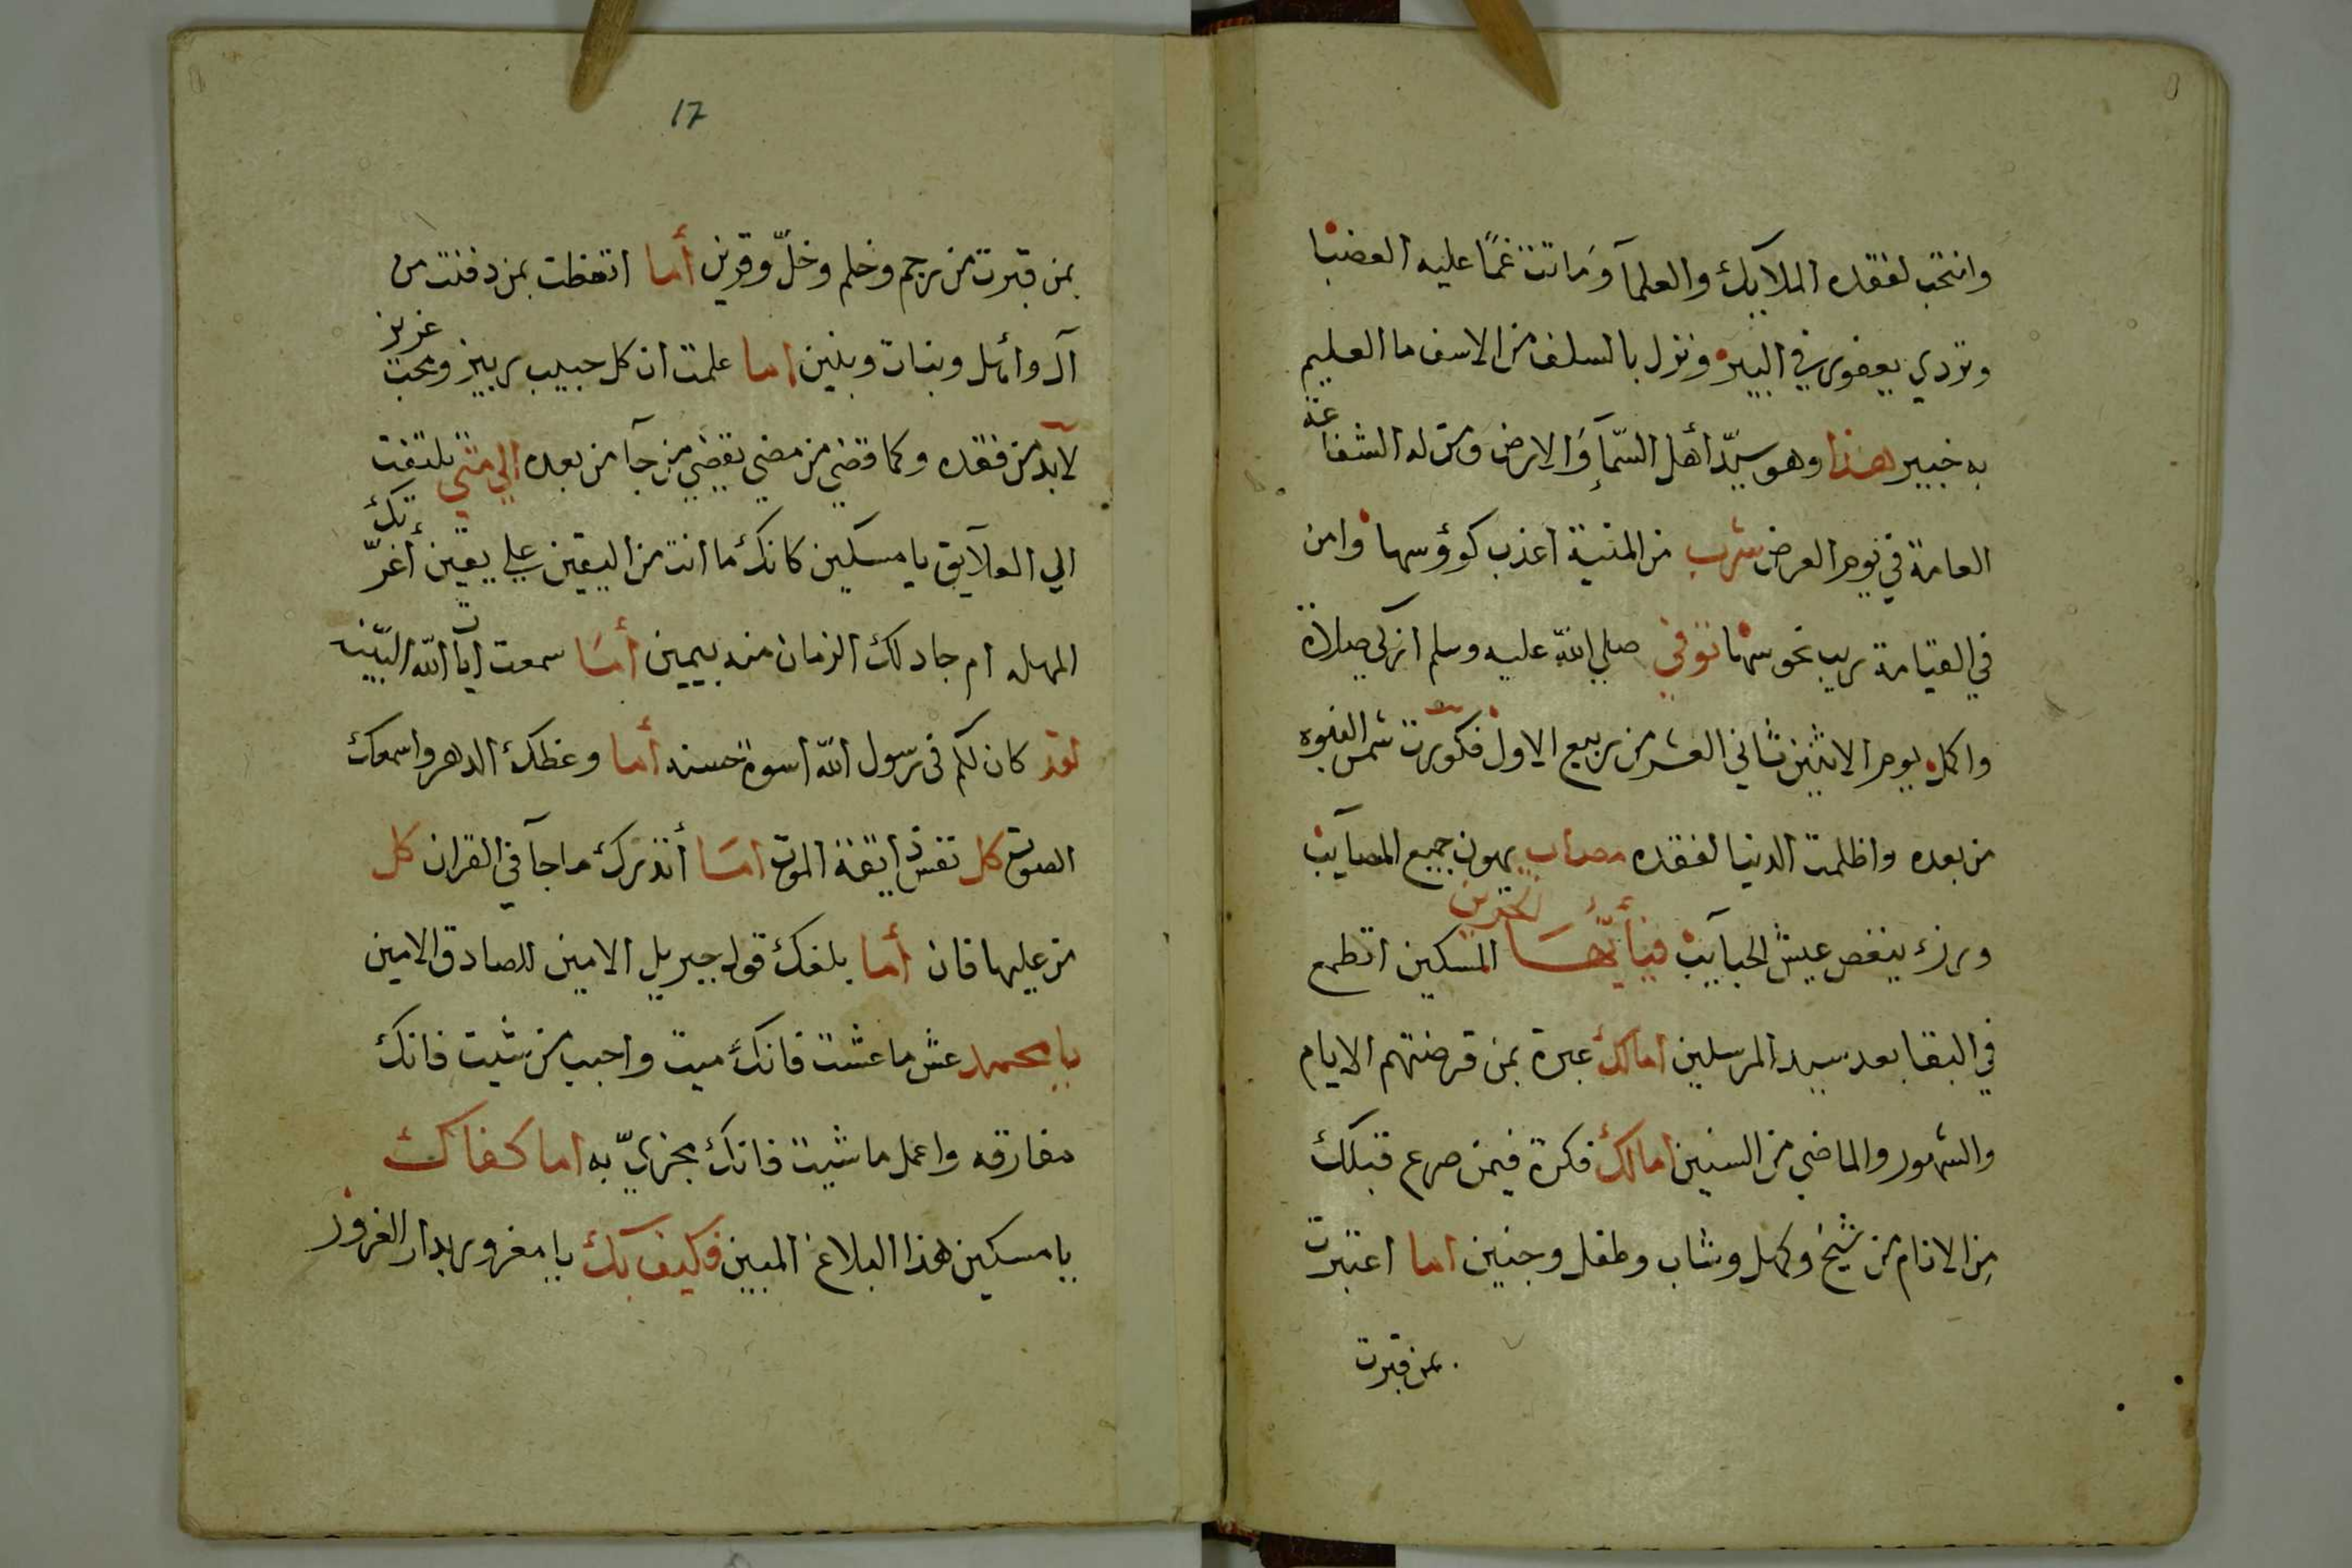 وانتحب لفقده الملايكة والعلمآ وَماتت غمًا عليه العضبا
وتردي يعفوى في البير ونزل بالسلف من الاسف ما العليم
به خبير هذا وهو سيّد أهل السّمآءِ وَالارض ومن له الشفاعة
العامة في يوم العرض شرب من المنية اعذب كوؤسها وامن
في القيامة ريب نحوسها توفي صلي الله عليه وسلم ازكي صلاة
واكمل يوم الاثنين ثاني العشر من ربيع الاول فكوّرت شمس النبوه
من بعده واظلمت الدنيا لفقده مصاب يهون جميع المصآيب
ورزء ينغص عيش الحبآيب فيأيّهَا الحزين المسكين اتطمع
في البقا بعد سيد المرسلين امالك عبرة بمن قرضتهم الايام
والشهور والماضي من السنين امالك فكرة فيمن صرع قبلك
مِن الانام من شيخ وكهل وشاب وطفل وجنين اما اعتبرت
بمن قبرت
17
بمن قبرت من رحم وخلم وخلّ وقرين أما اتعظت بمن دفنت من
آل وأهل وبنات وبنين اما علمت ان كل حبيب ربيز ومحب عزيز
لآبد من فقده وكما قضي من مضي يقضي من جآ من بعده الي متي تلتفت
الي العلآيق يا مسكين كانك ما انت من اليقين علي يقين أغرّتك
المهله ام جاد لك الزمان منه بيمين أمَا سمعت ايآت الله البّينه
لقد كان لكم في رسول الله اسوة حسنه أما وعظك الدهر واسمعك
الصوت كل نفس ذايقة الموت امَا أنذرك ما جآ في القران كل
من عليها فان أما بلغك قول جبريل الامين للصادق الامين
يا محمد عش ما عشت فانك ميت واحبب من شيت فانك
مفارقه واعمل ما شيت فانك مجزيّ به اما كفاك
يا مسكين هذا البلاغ المبين فكيف بك يا مغرور بدار الغرور